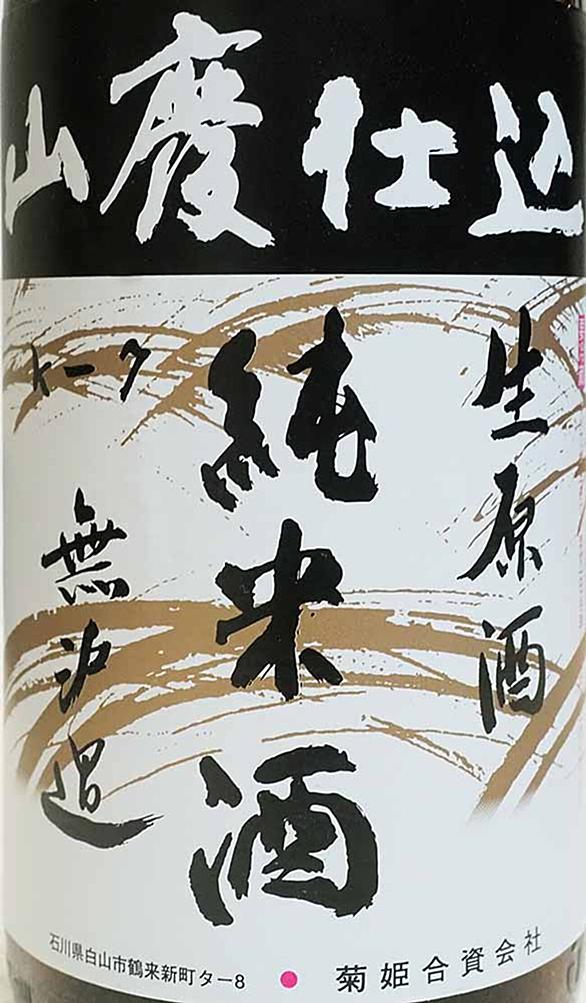 山廃仕込
生原酒
純米酒
k-7
無沪過
石川県白山市鶴来新町タ-8
菊姫合資会社